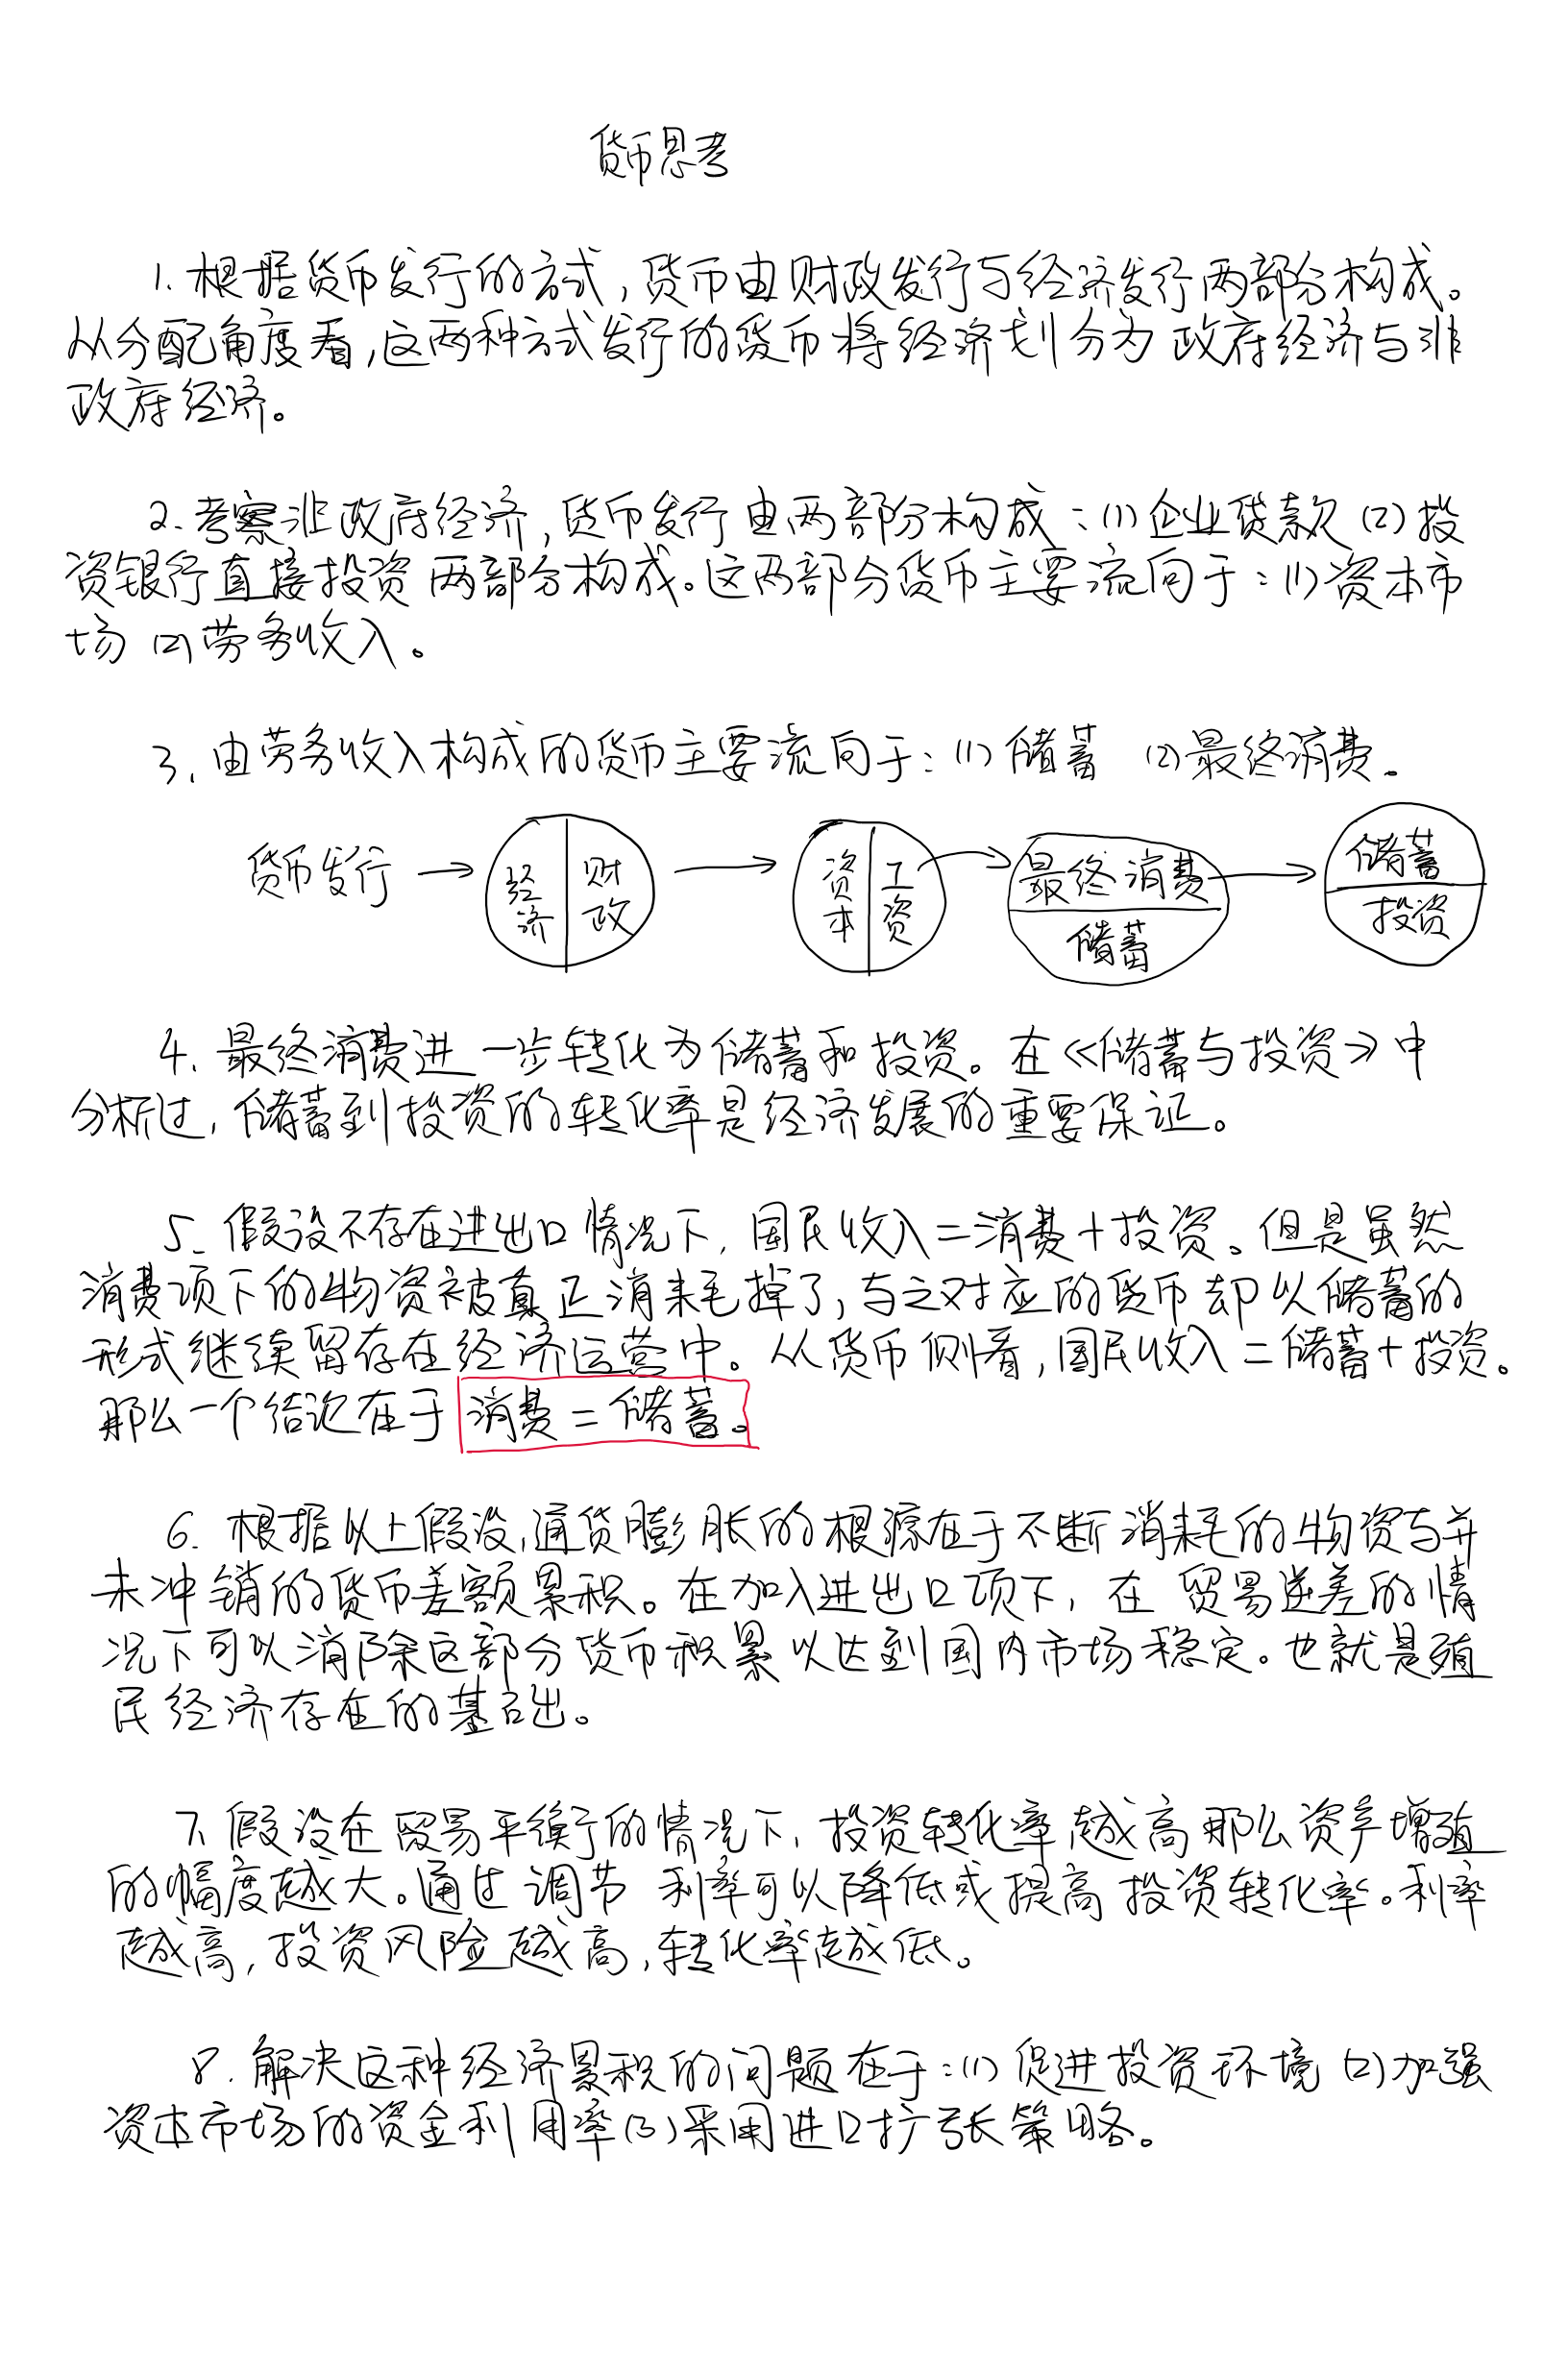 货币思考
1. 根据货币发行的方式,货币由财政发行与经济发行两部分构成。
从分配角度看,这两种方式发行的货币将经济划分为政府经济与非
政府经济。
2. 考察非政府经济,货币发行由两部分构成:(1)企业贷款(2)投
资银行直接投资两部分构成。这两部分货币主要流向于:(1)资本市
场(2)劳务收入。
3. 由劳务收入构成的货币主要流向于:(1)储蓄 (2)最终消费。
货币发行 → 经济 | 财政 → 资本 | 工资 → 最终消费 → 储蓄
储蓄 投资
4. 最终消费进一步转化为储蓄和投资。在《储蓄与投资》中
分析过,储蓄到投资的转化率是经济发展的重要保证。
5. 假设不存在进出口情况下,国民收入=消费+投资。但是虽然
消费项下的物资被真正消耗掉了,与之对应的货币却以储蓄的
形式继续留存在经济运营中。从货币侧看,国民收入=储蓄+投资。
那么一个结论在于消费=储蓄。
6. 根据以上假设,通货膨胀的根源在于不断消耗的物资与并
未冲销的货币差额累积。在加入进出口项下,在贸易逆差的情
况下可以消除这部分货币积累以达到国内市场稳定。也就是殖
民经济存在的基础。
7. 假设在贸易平衡的情况下,投资转化率越高那么资产增殖
的幅度越大。通过调节利率可以降低或提高投资转化率。利率
越高,投资风险越高,转化率越低。
8. 解决这种经济累积的问题在于:(1)促进投资环境(2)加强
资本市场的资金利用率(3)采用进口扩张策略。